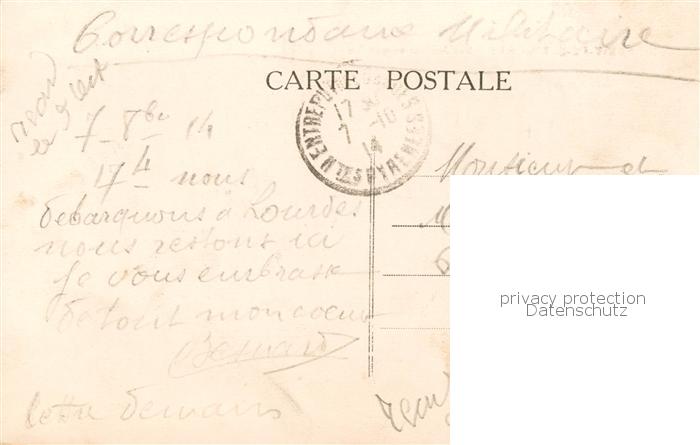 Correspondance Militaire
CARTE POSTALE
17 30
7 -10
14
7 - 8bre 14
17h nous
debarquons à Lourdes
nous restons ici
Je vous embrasse
de tout mon coeur
Bernard
lettre demain
Monsieur
privacy protection
Datenschutz